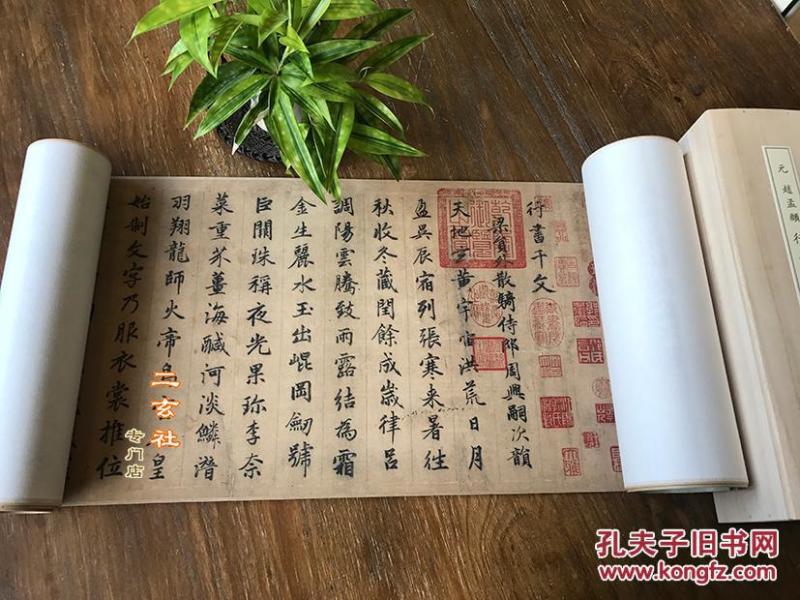 行書千文
梁負外散騎侍郎周興嗣次韻
天地玄黄宇宙洪荒日月
盈昃辰宿列張寒来暑往
秋收冬藏閏餘成歲律呂
調陽雲騰致雨露結為霜
金生麗水玉出崐岡劒號
巨闕珠稱夜光果珎李柰
菜重芥薑海醎河淡鱗潛
羽翔龍師火帝鳥
皇
始制文字乃服衣裳推位
元 趙孟頫 行
二玄社
专门店
孔夫子旧书网
www.kongfz.com